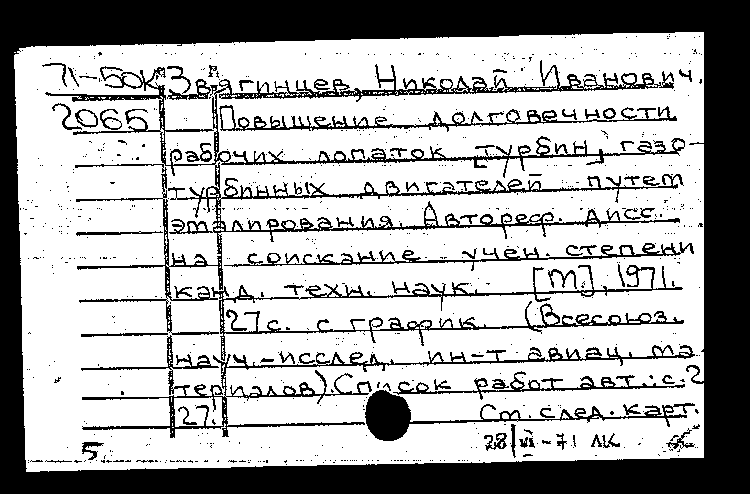 71-50К Звягинцев, Николай Иванович.
2065 Повышение долговечности
рабочих лопаток [турбин] газо-
турбинных двигателей путем
эмалирования. Автореф. дисс.
на соискание учен. степени
канд. техн. наук. [М], 1971.
27 с. с график. (Всесоюз.
науч.-исслед. ин-т авиац. ма
териалов). Список работ авт.: с. 2
27. См. след. карт.
5 28/VI-71 ЛК